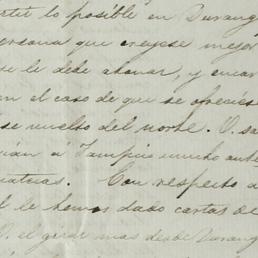 rtir lo posible en Durang
ersona que creyese mejor
se le debe abonar, y encar
en el caso de que se ofreciés
se vuelto del norte. O. sa
án á Tampico mucho ante
Con respecto a
l le hemos dado cartas de
O. el girar mas desde Durang